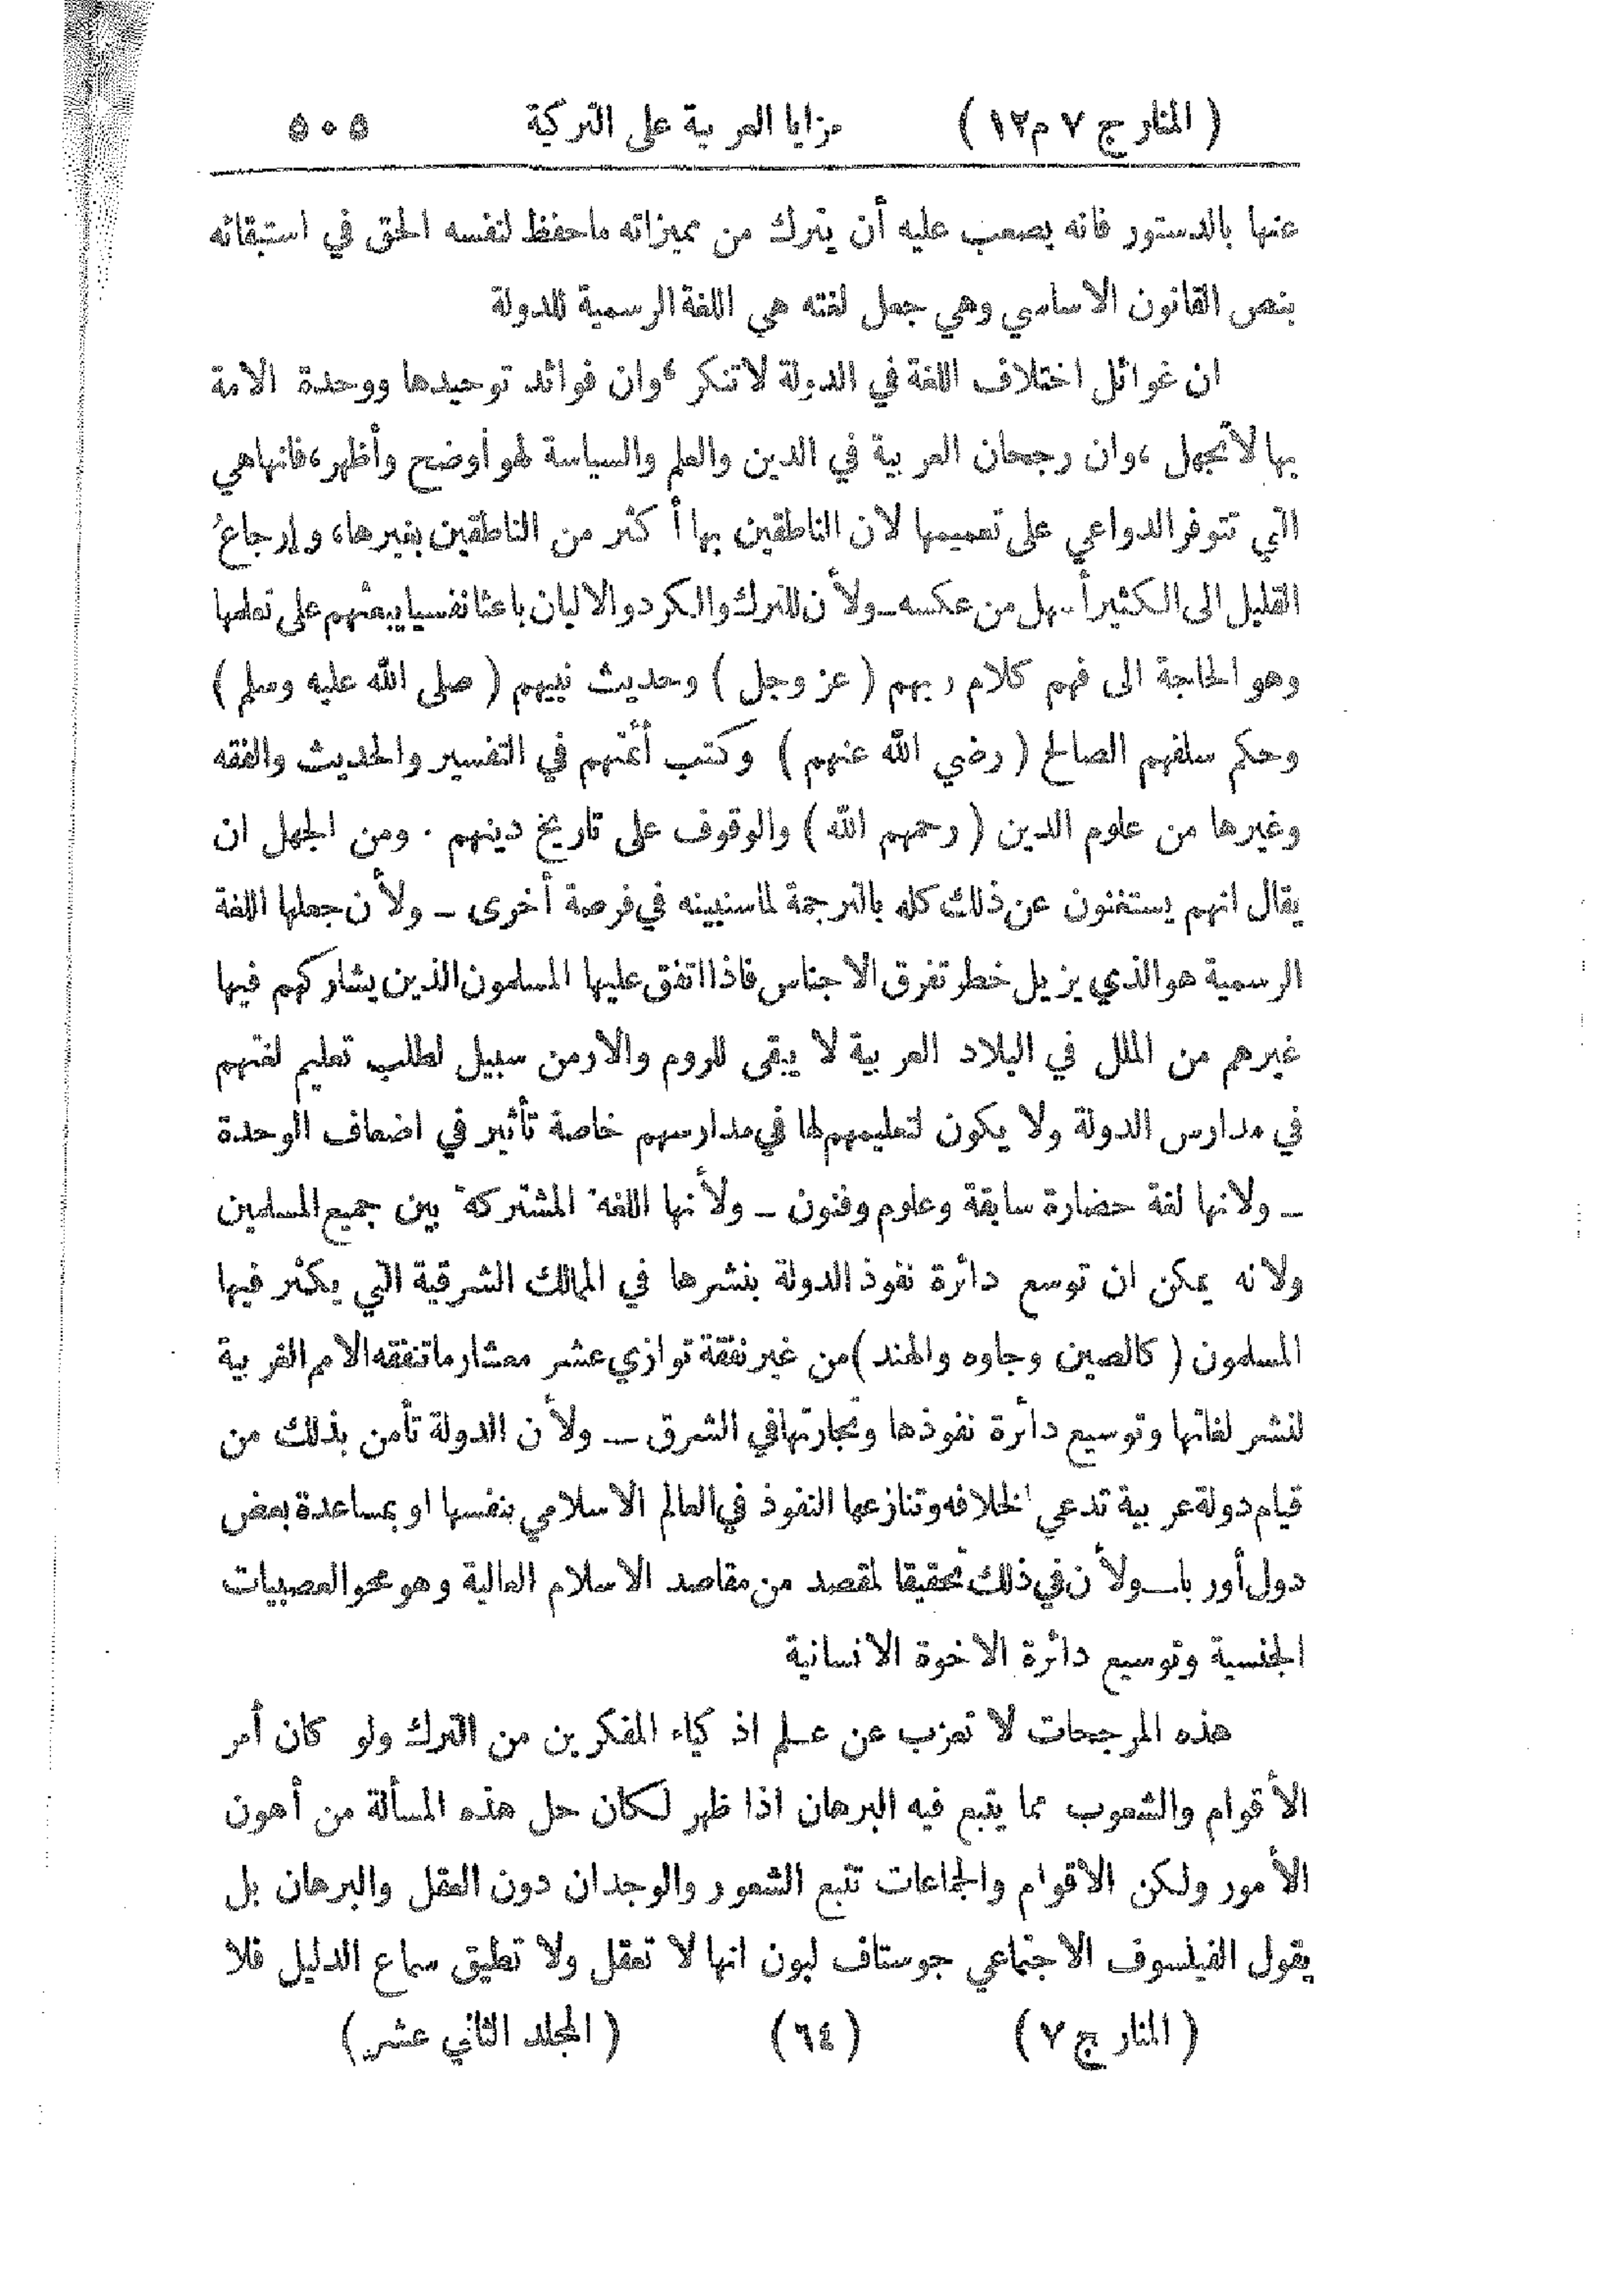 ( المنار ج ٧ م ١٢ ) مزايا العربية على التركية ٥٠٥
عنها بالدستور فانه يصعب عليه أن يترك من مميزاته ماحفظ لنفسه الحق في استبقائه
بنص القانون الاساسي وهي جعل لغته هي اللغة الرسمية للدولة
ان غوائل اختلاف اللغة في الدولة لاتنكر ، وان فوائد توحيدها ووحدة الامة
بها لاتجهل ، وان رجحان العربية في الدين والعلم والسياسة لهو أوضح وأظهر ، فانهاهي
التي تتوفر الدواعي على تعميمها لان الناطقين بها أكثر من الناطقين بغيرها، وإرجاعُ
القليل الى الكثير أسهل من عكسه ــ ولأن للترك والكرد والالبان باعثا نفسيا يبعثهم على تعلمها
وهو الحاجة الى فهم كلام ربهم ( عز وجل ) وحديث نبيهم ( صلى الله عليه وسلم )
وحكم سلفهم الصالح ( رضي الله عنهم ) وكتب أئمتهم في التفسير والحديث والفقه
وغيرها من علوم الدين ( رحمهم الله ) والوقوف على تاريخ دينهم . ومن الجهل ان
يقال انهم يستغنون عن ذلك كله بالترجمة لماسنبينه في فرصة أخرى ــ ولأن جعلها اللغة
الرسمية هو الذي يزيل خطر تفرق الاجناس فاذا اتفق عليها المسلمون الذين يشاركهم فيها
غيرهم من الملل في البلاد العربية لا يبقى للروم والارمن سبيل لطلب تعليم لغتهم
في مدارس الدولة ولا يكون لتعليمهم لها في مدارسهم خاصة تأثير في اضعاف الوحدة
ــ ولانها لغة حضارة سابقة وعلوم وفنون ــ ولأنها اللغة المشتركة بين جميع المسلمين
ولانه يمكن ان توسع دائرة نفوذ الدولة بنشرها في الممالك الشرقية التي يكثر فيها
المسلمون ( كالصين وجاوه والهند ) من غير نفقة توازي عشر معشار ماتنفقه الامم الغربية
لنشر لغاتها وتوسيع دائرة نفوذها وتجارتها في الشرق ــ ولأن الدولة تأمن بذلك من
قيام دولة عربية تدعي الخلافه وتنازعها النفوذ في العالم الاسلامي بنفسها او بمساعدة بعض
دول أوربا ــ ولأن في ذلك تحقيقا لمقصد من مقاصد الاسلام العالية وهو محو العصبيات
الجنسية وتوسيع دائرة الاخوة الانسانية
هذه المرجحات لا تعزب عن علم اذكياء المفكرين من الترك ولو كان أمر
الأقوام والشعوب مما يتبع فيه البرهان اذا ظهر لكان حل هذه المسألة من أهون
الأمور ولكن الاقوام والجماعات تتبع الشعور والوجدان دون العقل والبرهان بل
يقول الفيلسوف الاجتماعي جوستاف لبون انها لا تعقل ولا تطيق سماع الدليل فلا
( المنار ج ٧ ) ( ٦٤ ) ( المجلد الثاني عشر )